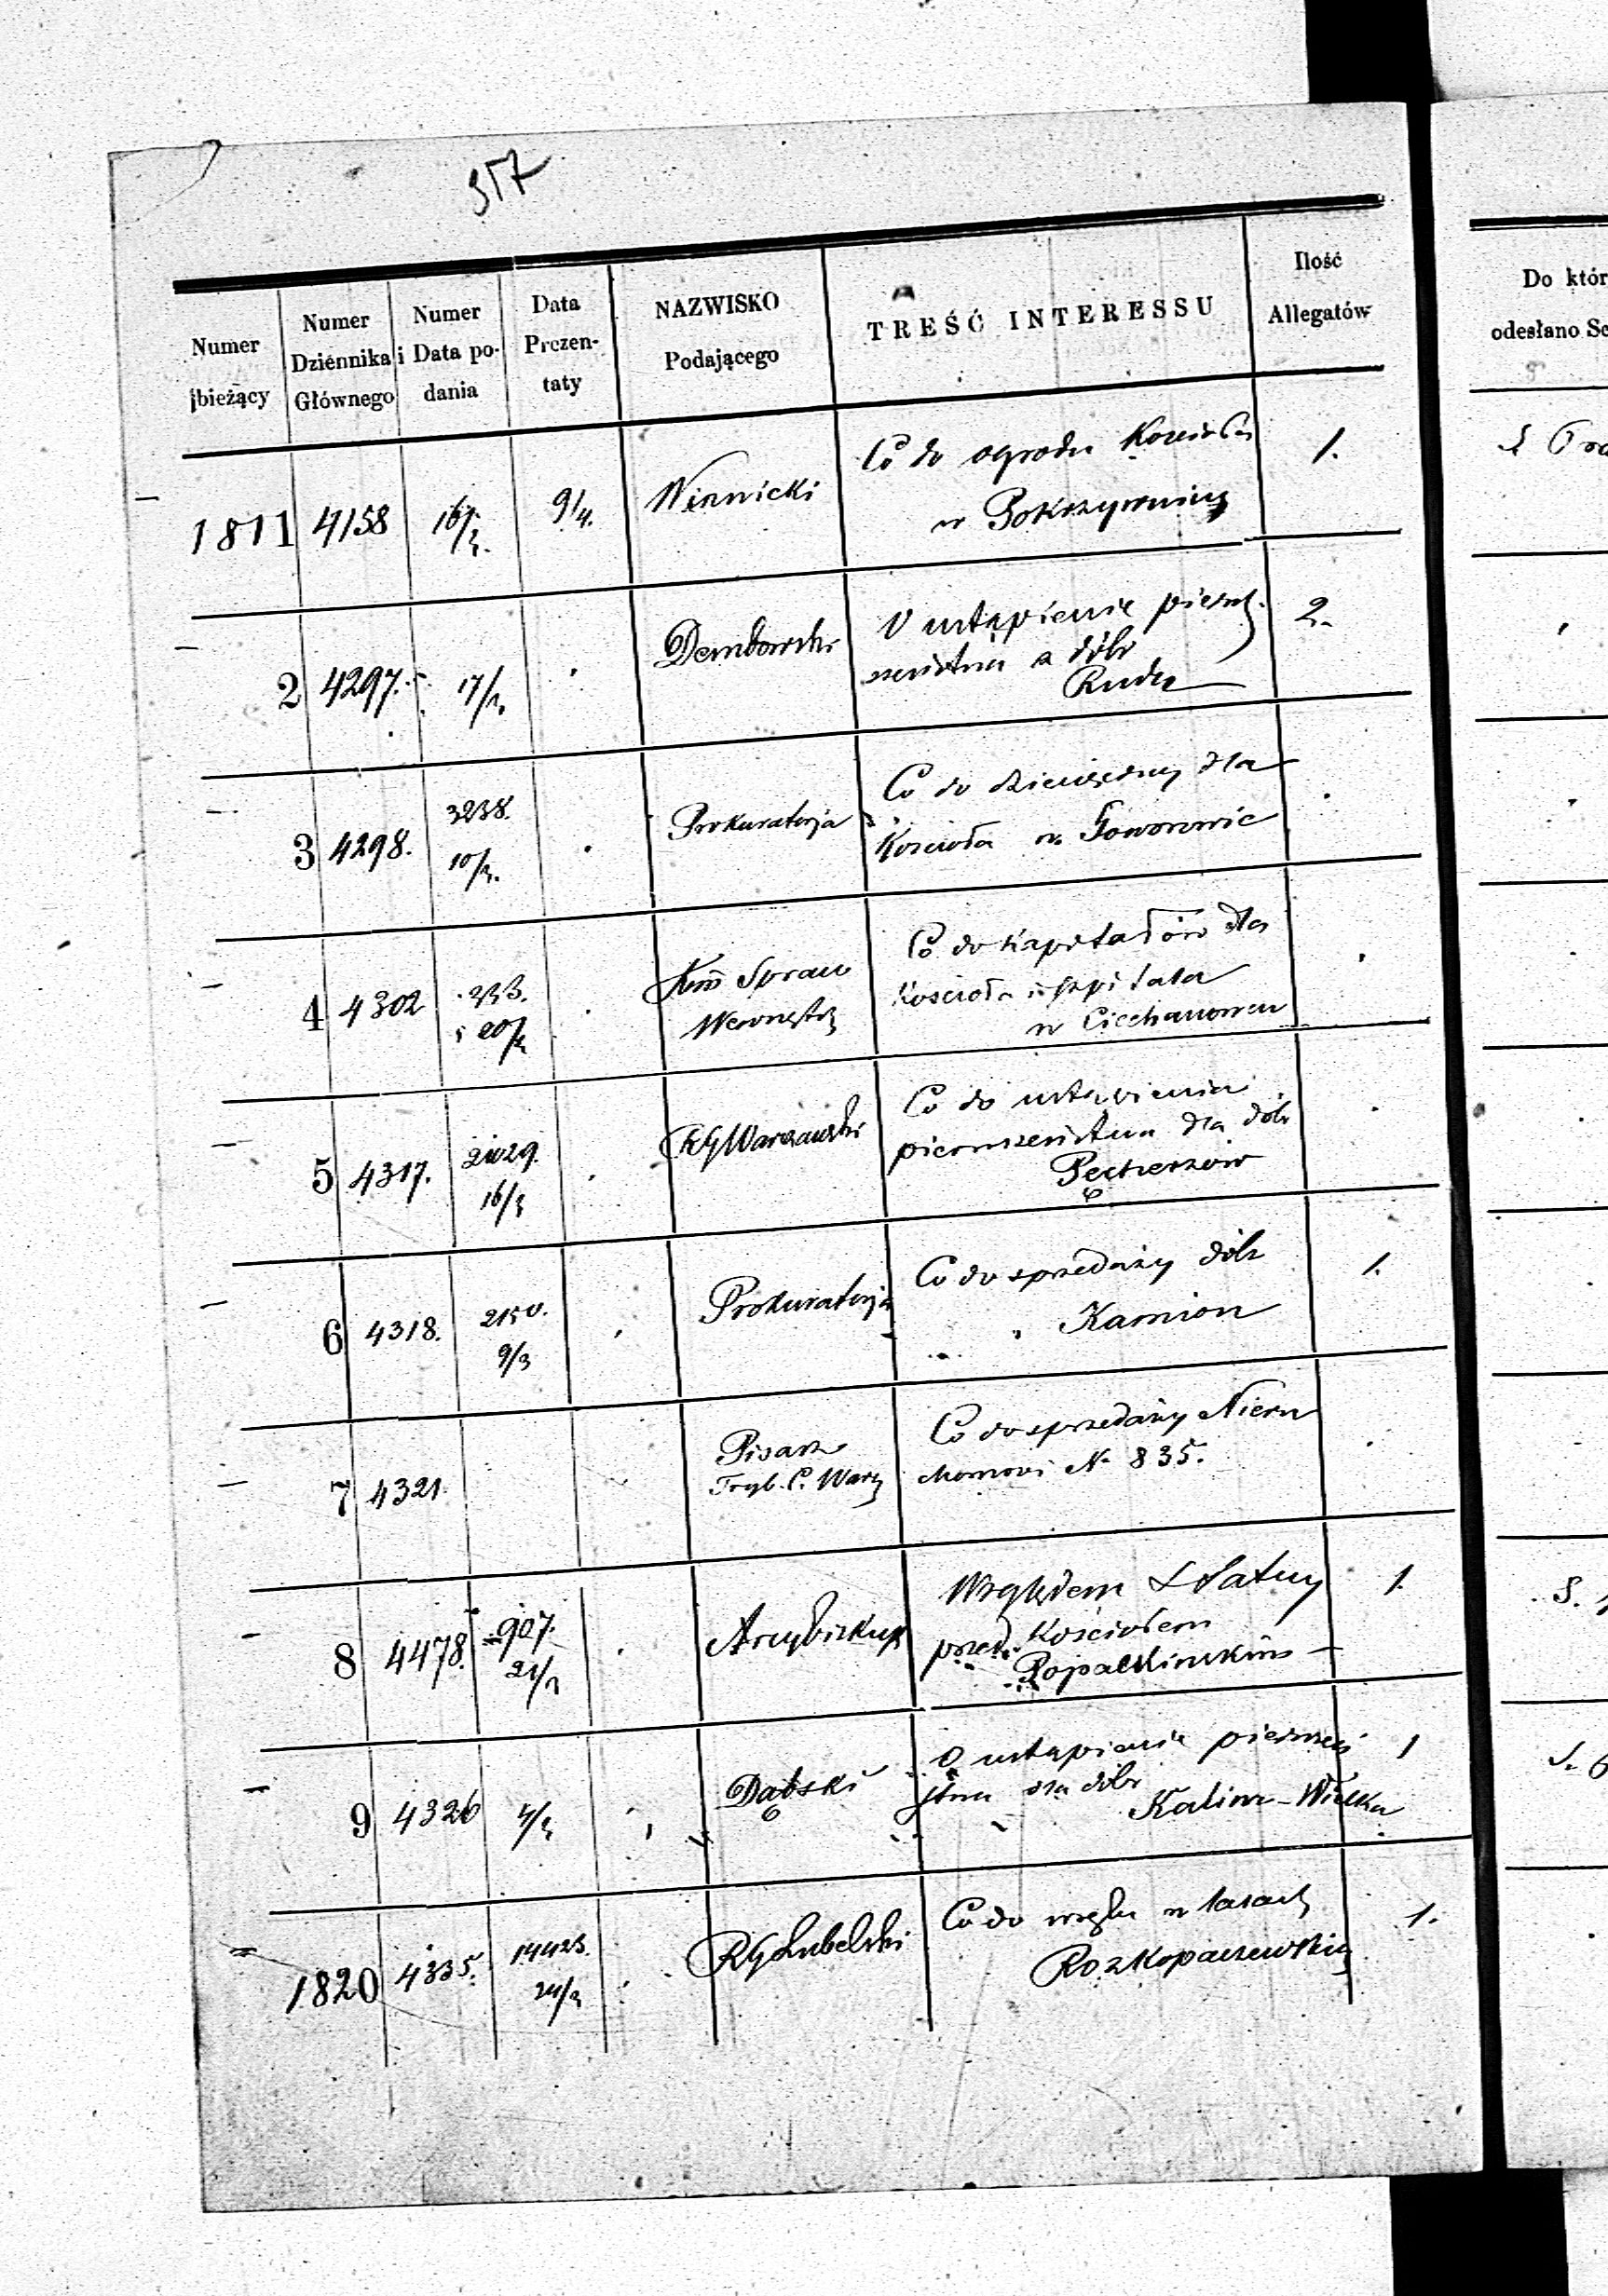 357
Numer bieżący
Numer Dziennika Głównego
Numer i Data podania
Data Prezentaty
NAZWISKO Podającego
TREŚĆ INTERESSU
Ilość Allegatów
Do któr
odesłano Se
1811 4158 16/3. 9/4. Winnicki Co do ogrodu Kościoła 1.
w Pokrzywnicy
2 4297. 17/3. Dembowski O ustąpienie pierw 2.
szeństwa z dóbr
Ruda
3 4298. 3238. 10/3. Prokuratorja Co do dziesięciny dla
Kościoła w Goworowie
4 4302 233. 20/3 Kom Spraw Co do Kapitałów dla
Wewnętrz Kościoła i szpitala
w Ciechanowcu
5 4317. 16/3 RG Warszawski Co do ustąpienia
pierwszeństwa dla dób
6 4318. 2150. 9/3 Prokuratorja Co do sprzedaży dóbr 1.
Kamion
7 4321. Pisarz Co do sprzedaży Nieru
Tryb. C. Warsz chomości N. 835.
8 4478. 907. 21/3 Arcybiskup Względem Statuy 1.
przed Kościołem
9 4326 4/3 Dąbski O ustąpienie pierwszeń 1
stwa dla dóbr
Kalinw-Wielka
1820 4335. 14423. 24/3 RG Lubelski Co do węglu w lasach 1.